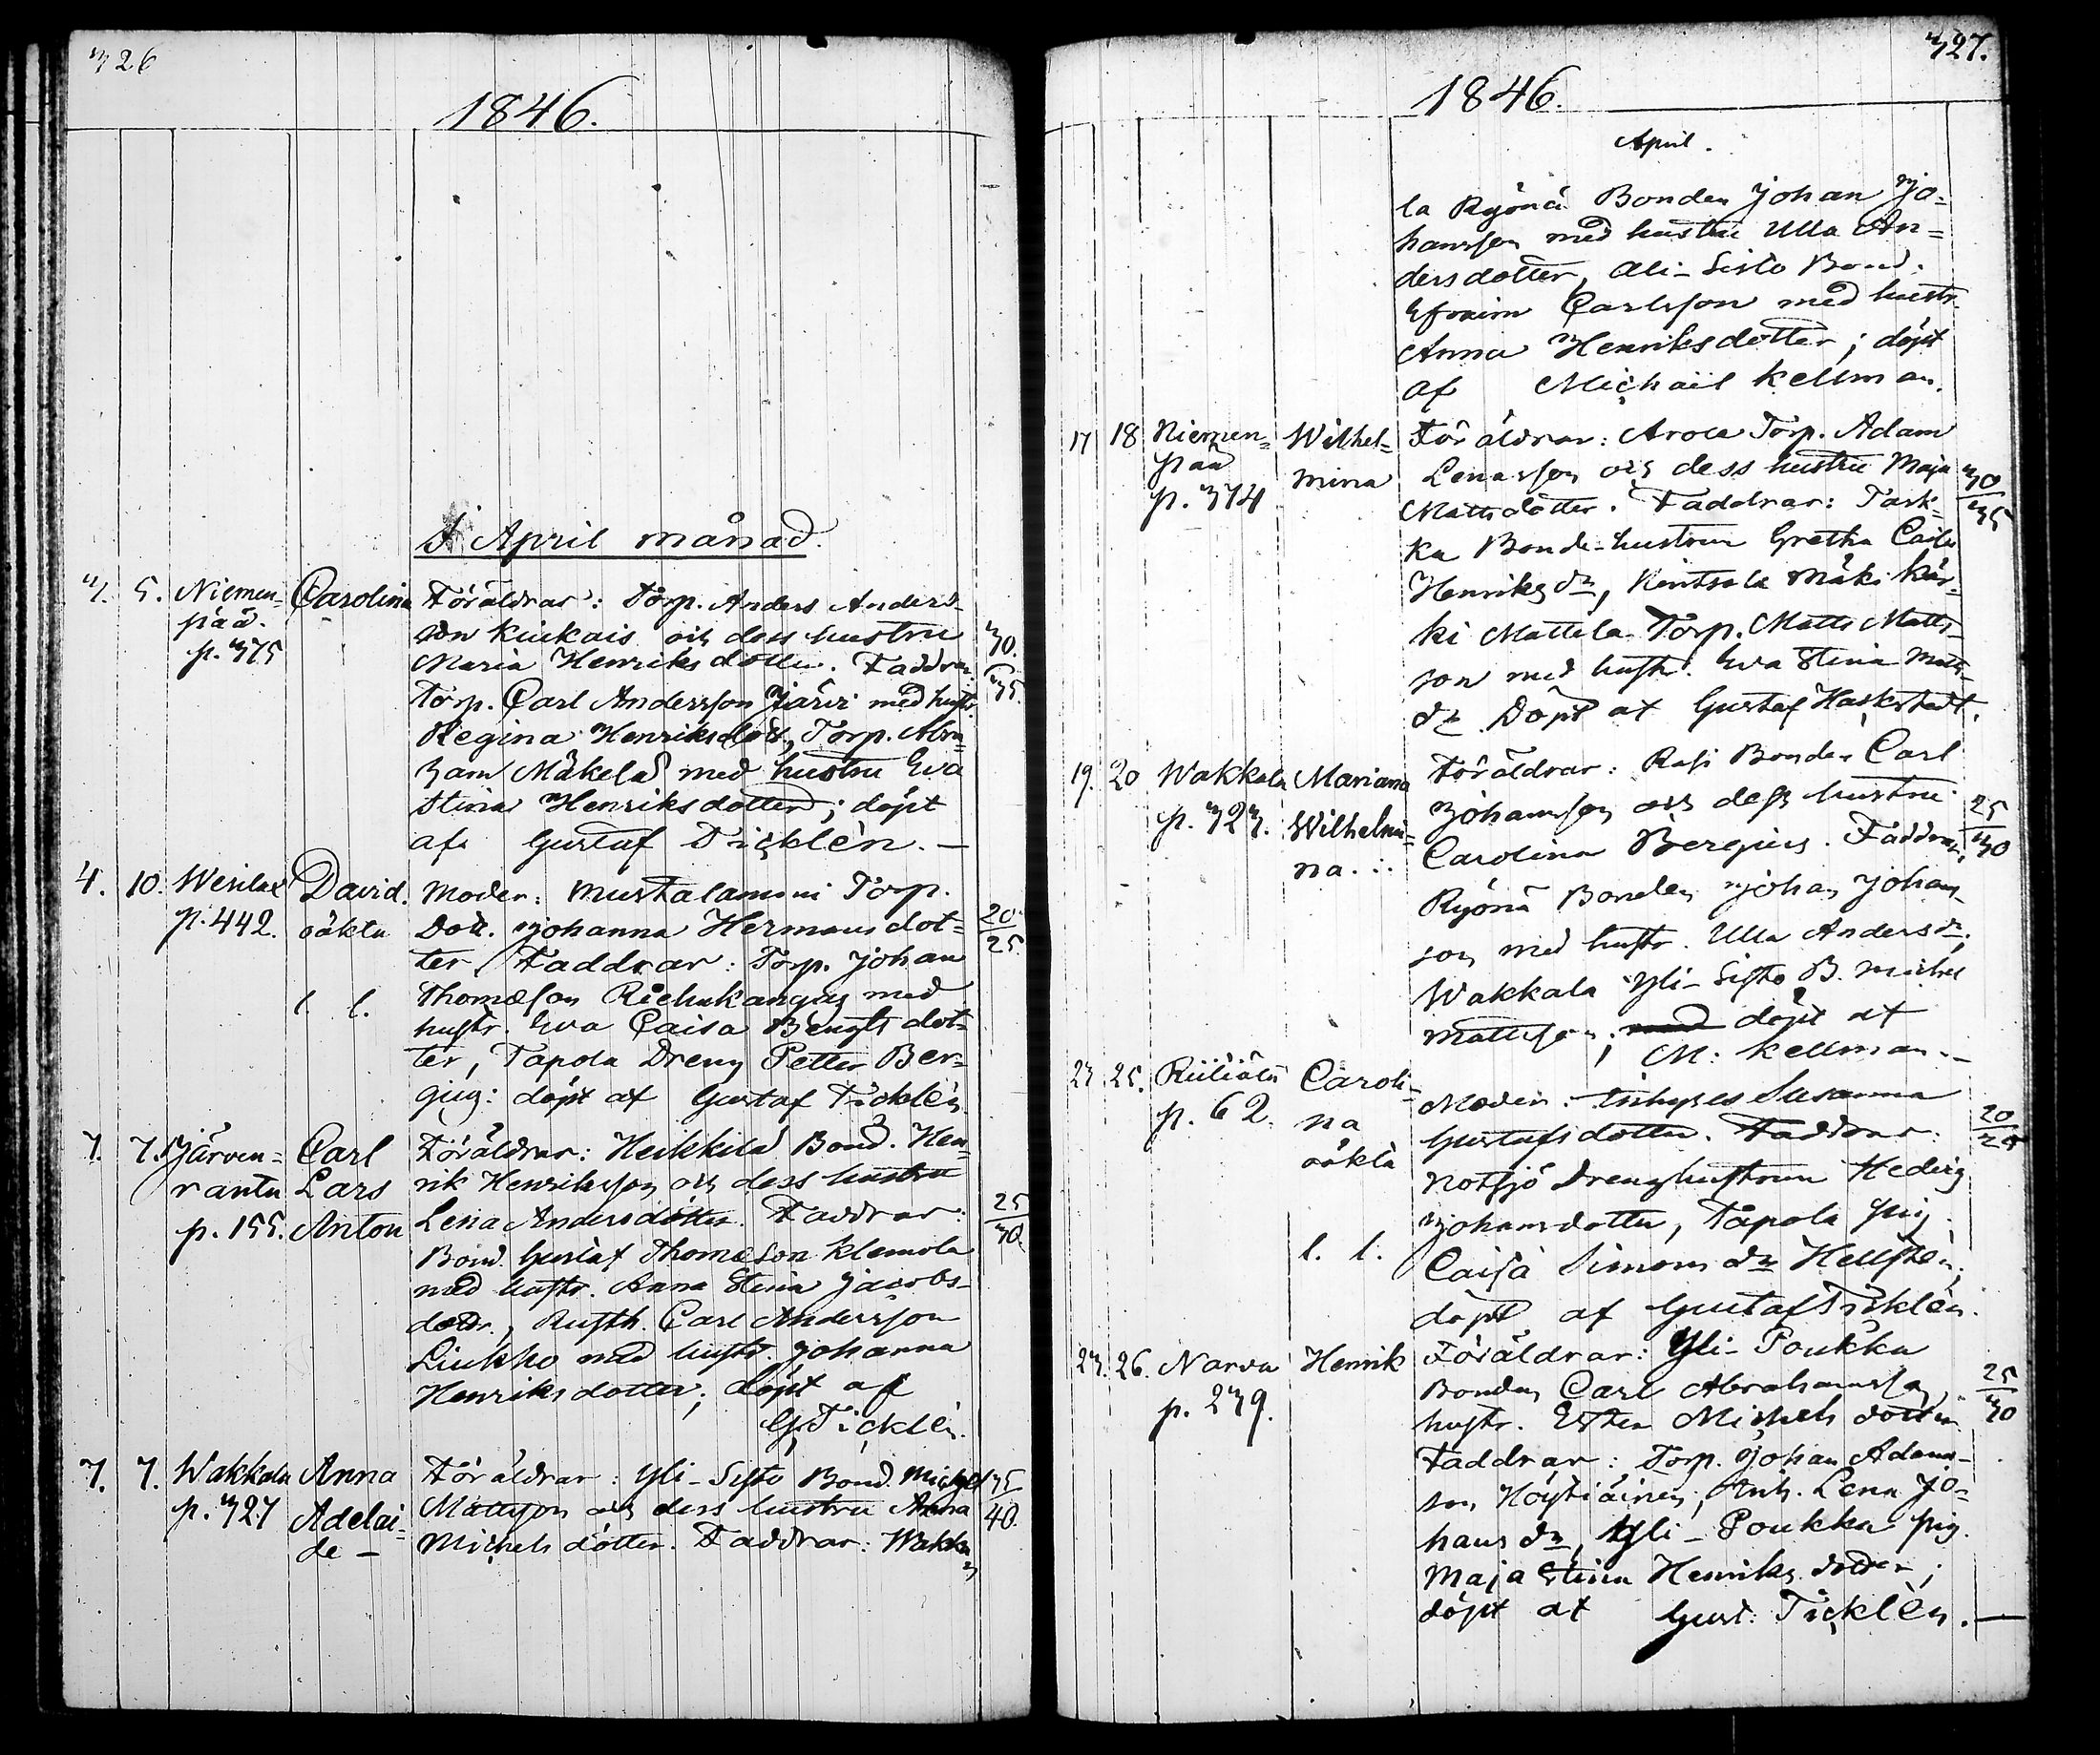 326
1846.
I April månad.
3. 5. Niemen- Carolina Föräldrar: Torp. Anders Anders-
pää. son Kiukais och dess hustru 30.
p. 375 Maria Henriksdotter. Faddrar: 35.
Torp. Carl Andersson Järvi med hustr.
Regina Henriksdott., Torp. Abra-
ham Mäkelä med hustru Eva
Stina Henriksdotter; döpt
af Gustaf Ticklén. —
4. 10. Wesilax David. Moder: Mustalammi Torp.
p. 442. oäkta Dott. Johanna Hermansdot= 20
ter. Faddrar: Torp. Johan 25
l. l. Thomæson Riehukangas med
hustr. Eva Caisa Bengts dot-
ter, Tapola Dreng Petter Ber-
gius: döpt af Gustaf Ticklén
7. 7. Järven= Carl Föräldrar: Heikkilä Bond. Hen-
rantu Lars rik Henriksson och dess hustru
p. 155. Anton Lena Andersdotter. Faddrar: 25
Bond. Gustaf Thomæson Klemola 30
med hustr. Anna Stina Jacobs-
dottr., Rusth. Carl Andersson
Liukko med hustr. Johanna
Henriksdotter; döpt af
G. Ticklén.
7. 7. Wakkala Anna Föräldrar: Yli-Sisto Bond. Michel 35
p. 327 Adelai= Mattsson och dess hustru Anna 40.
de — Michelsdotter. Faddrar: Wakka
327.
1846.
April.
la Ryönä Bonden Johan Jo-
hansson med hustru Ulla An=
dersdotter, Ali-Sisto Bond.
Efraim Carlsson med hustr.
Anna Henriksdotter; döpt
af Michaël Kellman.
17 18 Niemen= Wilhel= Föräldrar: Arola Torp. Adam
pää mina Lenasson och dess hustru Maja 30
p. 374 Mattsdotter. Faddrar: Task- 35
ka Bonde-hustrun Gretha Caisa
Henriksdr, Kintsala Mäki Kär-
ki Mattila Torp. Matts Matts-
son med hustr. Eva Stina Matts-
dr. Döpt af Gustaf Hackstedt.
19. 20 Wakkala Mariana Föräldrar: Rasi Bonden Carl
p. 323. Wilhelmi- Johansson och dess hustru 25
na. Carolina Bergius. Faddrar: 30
Ryönä Bonden Johan Johans-
son med hustr. Ulla Andersdr,
Wakkala Yli-Sisto B. Michel
Mattsson; med döpt af
M: Kellman. —
23 25. Riiliälä Caroli- Moder: Inhyses Susanna
p. 62. na Gustafsdotter. Faddrar: 20
oäkta Notsjö Drenghustrun Hedvig 25
l. l. Johansdotter, Tapola pig.
Caisa Simonsdr Hellstén;
döpt af Gustaf Ticklén.
23. 26. Narva Henrik Föräldrar: Yli-Poukka
p. 239. Bonden Carl Abrahamsson, 25
hustr. Esther Michelsdotter 30
Faddrar: Torp. Johan Adams-
son Höytiäinen, Enk. Lena Jo-
hansdr, Yli-Poukka pig.
Maja Stina Henriksdotter;
döpt af Gust: Ticklén. —